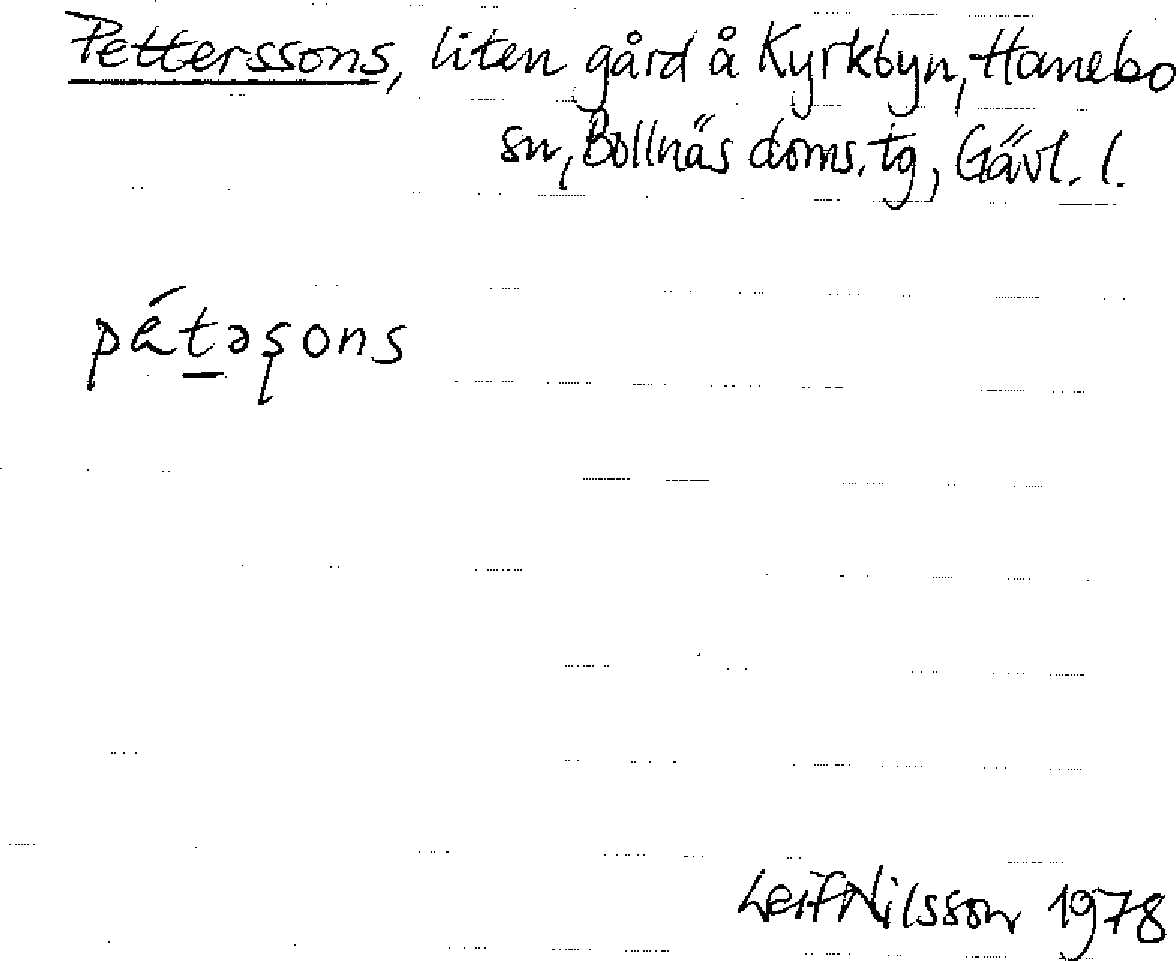 Pettersons, liten gård å Kyrkbyn, Hanebo
sn, Bollnäs doms. tg, Gävl. l.
pétəșons
Leif Nilsson 1978